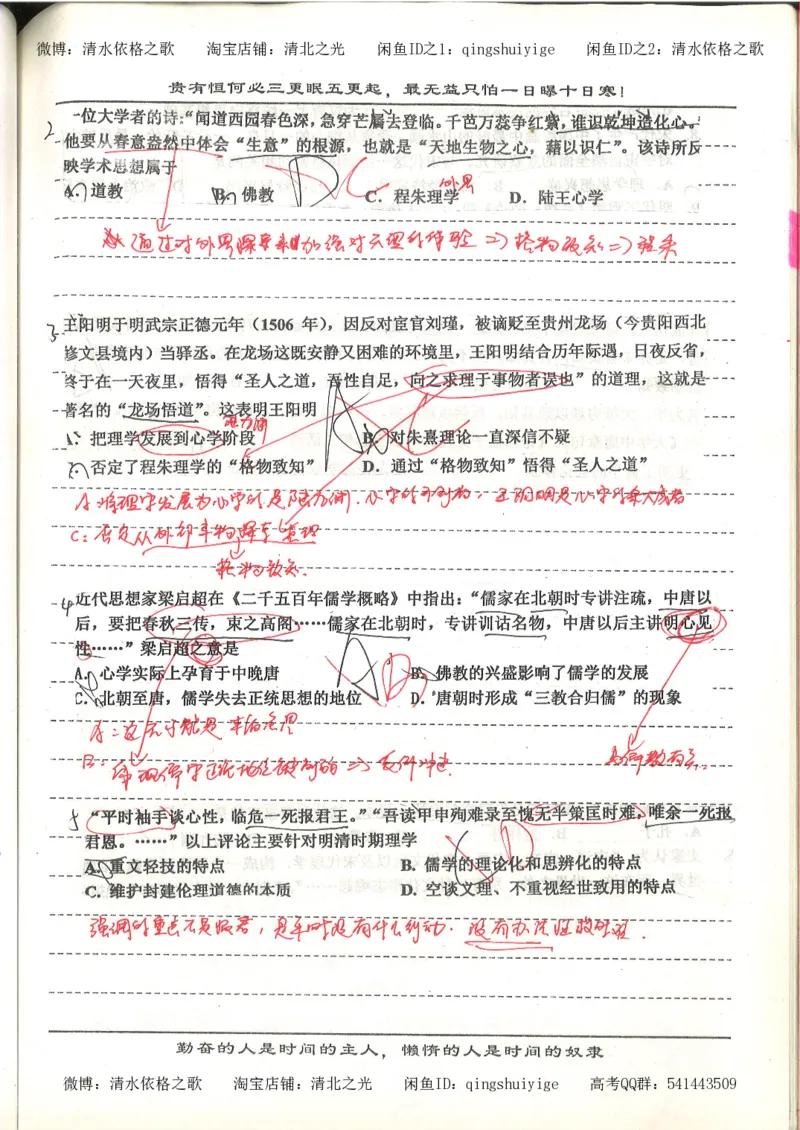 微博：清水依格之歌 淘宝店铺：清北之光 闲鱼ID之1：qingshuiyige 闲鱼ID之2：清水依格之歌
贵有恒何必三更眠五更起，最无益只怕一日曝十日寒！
2 一位大学者的诗：“闻道西园春色深，急穿芒屩去登临。千葩万蕊争红紫，谁识乾坤造化心。”
他要从春意盎然中体会“生意”的根源，也就是“天地生物之心，藉以识仁”。该诗所反
映学术思想属于
外界
A. 道教 B. 佛教 D C C. 程朱理学 D. 陆王心学
通过对外界探寻来加强对天理的体验 => 格物致知 => 程朱
3 王阳明于明武宗正德元年（1506 年），因反对宦官刘瑾，被谪贬至贵州龙场（今贵阳西北
修文县境内）当驿丞。在龙场这既安静又困难的环境里，王阳明结合历年际遇，日夜反省，
终于在一天夜里，悟得“圣人之道，吾性自足，向之求理于事物者误也”的道理，这就是
著名的“龙场悟道”。这表明王阳明
陆九渊
A. 把理学发展到心学阶段 A C B. 对朱熹理论一直深信不疑
C. 否定了程朱理学的“格物致知” D. 通过“格物致知”悟得“圣人之道”
A：将理学发展为心学的是陆九渊，心学的开创者，王阳明是心学的集大成者
C：否定从外部事物探求至理
格物致知.
4 近代思想家梁启超在《二千五百年儒学概略》中指出：“儒家在北朝时专讲注疏，中唐以
后，要把春秋三传，束之高阁……儒家在北朝时，专讲训诂名物，中唐以后主讲明心见
性……”梁启超之意是
A. 心学实际上孕育于中晚唐 A B B. 佛教的兴盛影响了儒学的发展
C. 北朝至唐，儒学失去正统思想的地位 D. 唐朝时形成“三教合归儒”的现象
5 “平时袖手谈心性，临危一死报君王。”“吾读甲申殉难录至愧无半策匡时难，唯余一死报
君恩。……”以上评论主要针对明清时期理学
A. 重文轻技的特点 B. 儒学的理论化和思辨化的特点
C. 维护封建伦理道德的本质 D. 空谈文理、不重视经世致用的特点
强调的重点不是报君，是平时没有什么行动.
勤奋的人是时间的主人，懒惰的人是时间的奴隶
微博：清水依格之歌 淘宝店铺：清北之光 闲鱼ID：qingshuiyige 高考QQ群：541443509